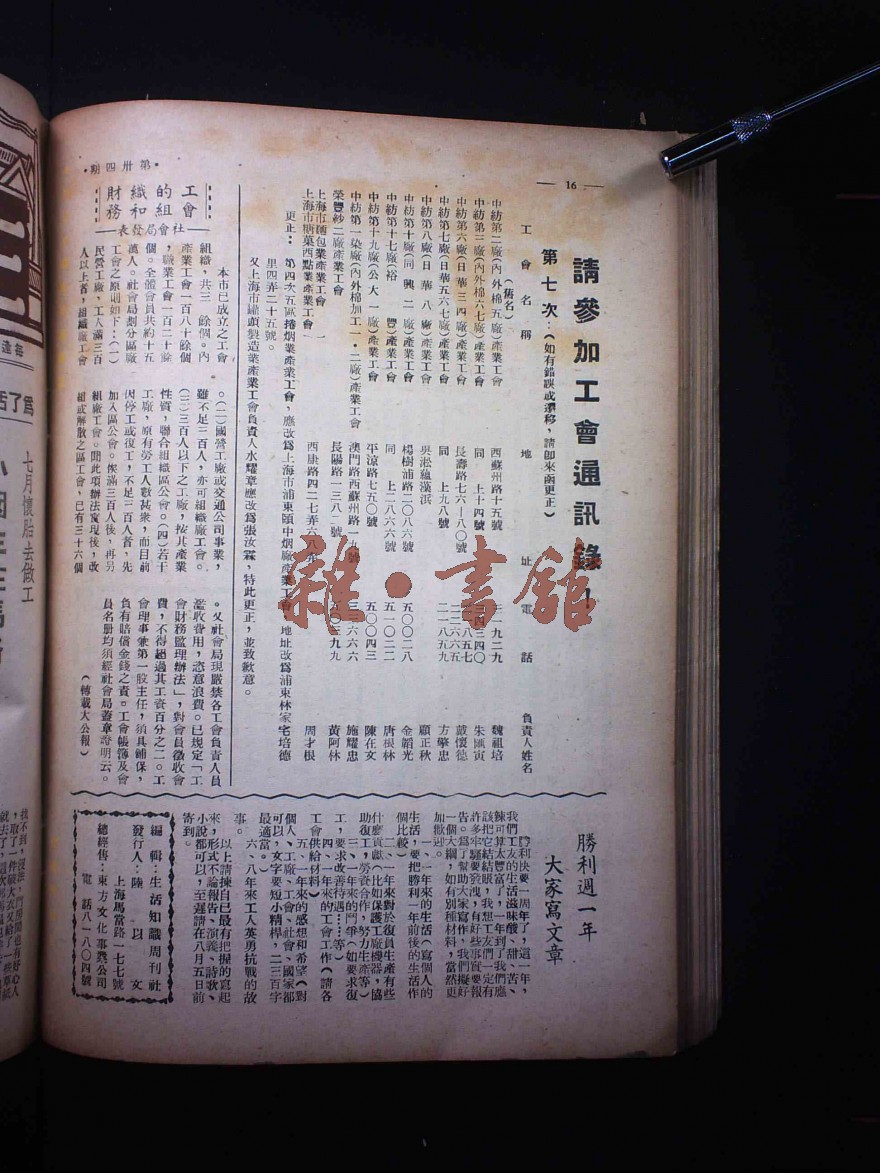 第卅四期
16
請參加工會通訊錄！
第七次：（如有錯誤或遷移，請即來函更正）
工會名稱　地址　電話　負責人姓名
（舊名）
中紡第二廠（內外棉五廠）產業工會　西蘇州路十五號　魏祖培
中紡第三廠（內外棉六七廠）產業工會　同上十四號　朱匯寅
中紡第六廠（日華三四廠）產業工會　長壽路七六—八〇號　戴懷德
中紡第七廠（日華五六七廠）產業工會　同上九八號　二一八五九　方肇忠
中紡第八廠（日華八廠）產業工會　吳淞蘊藻浜　顧正秋
中紡第十廠（同興二廠）產業工會　楊樹浦路二〇八六號　五〇〇二八　金韜光
中紡第十七廠（裕豐）產業工會　同上二八六六號　五一〇二二　唐根林
中紡第十九廠（公大一廠）產業工會　平涼路七五〇號　五〇〇四三　陳在文
中紡第一染廠（內外棉加工一・二廠）產業工會　澳門路西蘇州路一九號　施耀忠
榮豐紗二廠產業工會　長陽路一三八二號　黃阿林
上海市麵包業產業工會
上海市糖菓西點業產業工會　西康路四二七弄六八弄　周才根
更正：第四次五區捲烟業產業工會，應改爲上海市浦東頤中烟廠產業工會，地址改爲浦東林家宅培德
里四弄二十五號。
又上海市罐頭製造業產業工會負責人水耀章應改爲張汝霖，特此更正，並致歉意。
工會的組織和財務
—社會局發表—
本市已成立之工會
組織，共三　餘個。內
產業工會一百八十餘個
，職業工會一百二十餘
個。全體會員共約十五
萬人。社會局劃分區廠
工會之原則如下：（一）
民營工廠，工人滿三百
人以上者，組織廠工會
。（二）國營工廠或交通公司事業，
雖不足三百人，亦可組織廠工會。
（三）三百人以下之工廠，按其產業
性質，聯合組織區公會。（四）若干
工廠，原有勞工人數甚衆，而目前
因停工或復工，不足三百人者，先
加入區公會。俟滿三百人後，再另
組廠工會。聞此項辦法實現後，改
組或解散之區工會，已有三十六個
。又社會局現嚴禁各工會負責人員
濫收費用，恣意浪費。已規定「工
會財務監理辦法」，對會員徵收會
費，不得超過其工資百分之二。工
會理事兼第一股主任，須具舖保，
負有賠償金錢之責。工會帳簿及會
員名册均須經社會局蓋章證明云。
（轉載大公報）
勝利週一年
大家寫文章
勝利快要一周年了，這一年，
我們工友的生活滋味酸、甜、苦、
辣可算太豐富了，一年到了我們應
該把它結結賬，我想工友們一定有
許多牢騷要發洩，有好些事實要報
告。爲了幫助大家寫作，我們擬好
一個大綱，如有別種材料，當然更
加歡迎。
一、一年來的生活（寫個人的
生活，要把勝利一年前後的生活作
個比較）
二、一年來對於復員生產有些
什麼貢獻（比如保護工廠機器，協
助復工，勞資合作，努力生產等）
三、一年來的鬥爭（如要求復
工，要求改善待遇……等）
四、一年來的工會工作（請各
工會供給材料）
五、一年來的感想和希望（對
個人、工廠、工會、社會、國家都
可以，文字要短小精桿，二三百字
最適當。）
六、八年來工人英勇抗戰的故
事。
以上請揀自己最有把握的寫起
來，形式不論報告、演義、詩歌、
小說都可以，至遲請在八月五日前
寄到。
編輯：生活知識周刊社
發行人：陸以文
上海馬當路一七七號
總經售：東方文化事業公司
電話八一八〇四號
雜・書館
七月懷胎去做工